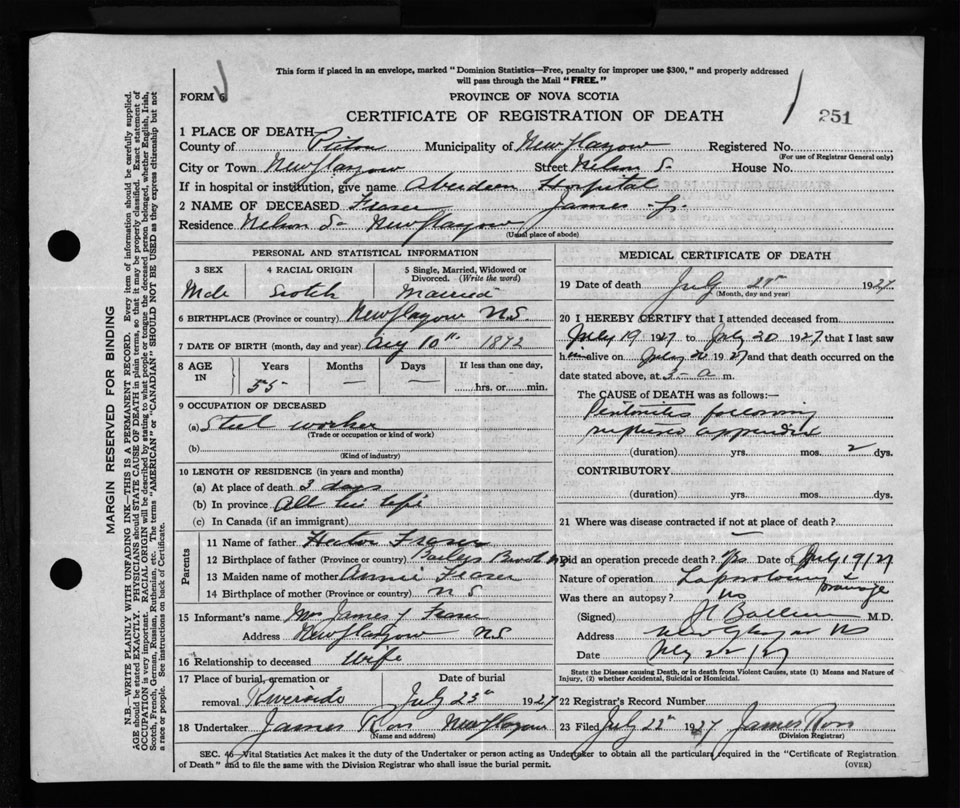 This form if placed in an envelope, marked "Dominion Statistics—Free, penalty for improper use $300," and properly addressed
will pass through the Mail "FREE."
FORM 6
PROVINCE OF NOVA SCOTIA
CERTIFICATE OF REGISTRATION OF DEATH
251
1 PLACE OF DEATH
County of Pictou Municipality of New Glasgow Registered No.
(For use of Registrar General only)
City or Town New Glasgow Street Nelson S. House No.
If in hospital or institution, give name Aberdeen Hospital
2 NAME OF DECEASED Fraser James
Residence Nelson S- New Glasgow
(Usual place of abode)
PERSONAL AND STATISTICAL INFORMATION
3 SEX 4 RACIAL ORIGIN 5 Single, Married, Widowed or
Divorced. (Write the word)
Male Scotch Married
6 BIRTHPLACE (Province or country) New Glasgow N.S.
7 DATE OF BIRTH (month, day and year) Aug 10th 1872
8 AGE IN Years Months Days If less than one day,
55 — — hrs. or min.
9 OCCUPATION OF DECEASED
(a) Steel worker
(Trade or occupation or kind of work)
(b)
(Kind of industry)
10 LENGTH OF RESIDENCE (in years and months)
(a) At place of death 3 days
(b) In province All his life
(c) In Canada (if an immigrant)
Parents
11 Name of father Hector Fraser
12 Birthplace of father (Province or country) Baileys Brook N.S.
13 Maiden name of mother Annie Fraser
14 Birthplace of mother (Province or country) N S
15 Informant's name Mrs James Fraser
Address New Glasgow N.S.
16 Relationship to deceased Wife
17 Place of burial, cremation or Date of burial
removal Riverside July 23rd 1927
18 Undertaker James Ross New Glasgow
(Name and address)
MEDICAL CERTIFICATE OF DEATH
19 Date of death July 1927
(Month, day and year)
20 I HEREBY CERTIFY that I attended deceased from
July 19 1927 to July 20 1927 that I last saw
him alive on July 20 1927 and that death occurred on the
date stated above, at 3 a m.
The CAUSE of DEATH was as follows:—
Peritonitis following
ruptured appendix
(duration) yrs. mos. 2 dys.
CONTRIBUTORY
(duration) yrs. mos. dys.
21 Where was disease contracted if not at place of death?
Did an operation precede death? Yes Date of July 19/27
Nature of operation Laparotomy & drainage
Was there an autopsy? No
(Signed) M.D.
Address New Glasgow NS
Date July 22/27
State the Disease causing Death, or in death from Violent Causes, state (1) Means and Nature of
Injury, (2) whether Accidental, Suicidal or Homicidal.
22 Registrar's Record Number
23 Filed July 22nd 1927 James Ross
(Division Registrar)
SEC. 40 Vital Statistics Act makes it the duty of the Undertaker or person acting as Undertaker to obtain all the particulars required in the "Certificate of Registration
of Death" and to file the same with the Division Registrar who shall issue the burial permit.
(OVER)
MARGIN RESERVED FOR BINDING
N.B.—WRITE PLAINLY WITH UNFADING INK—THIS IS A PERMANENT RECORD. Every item of information should be carefully supplied.
AGE should be stated EXACTLY. PHYSICIANS should STATE CAUSE OF DEATH in plain terms, so that it may be properly classified. Exact statement of
OCCUPATION is very important. RACIAL ORIGIN will be described by stating to what people, or tongue the deceased person belonged, whether English, Irish,
Scotch, French, German, Russian, Ruthenian, etc. The terms "AMERICAN" or "CANADIAN" SHOULD NOT BE USED as they express citizenship but not
a race or people. See instructions on back of Certificate.